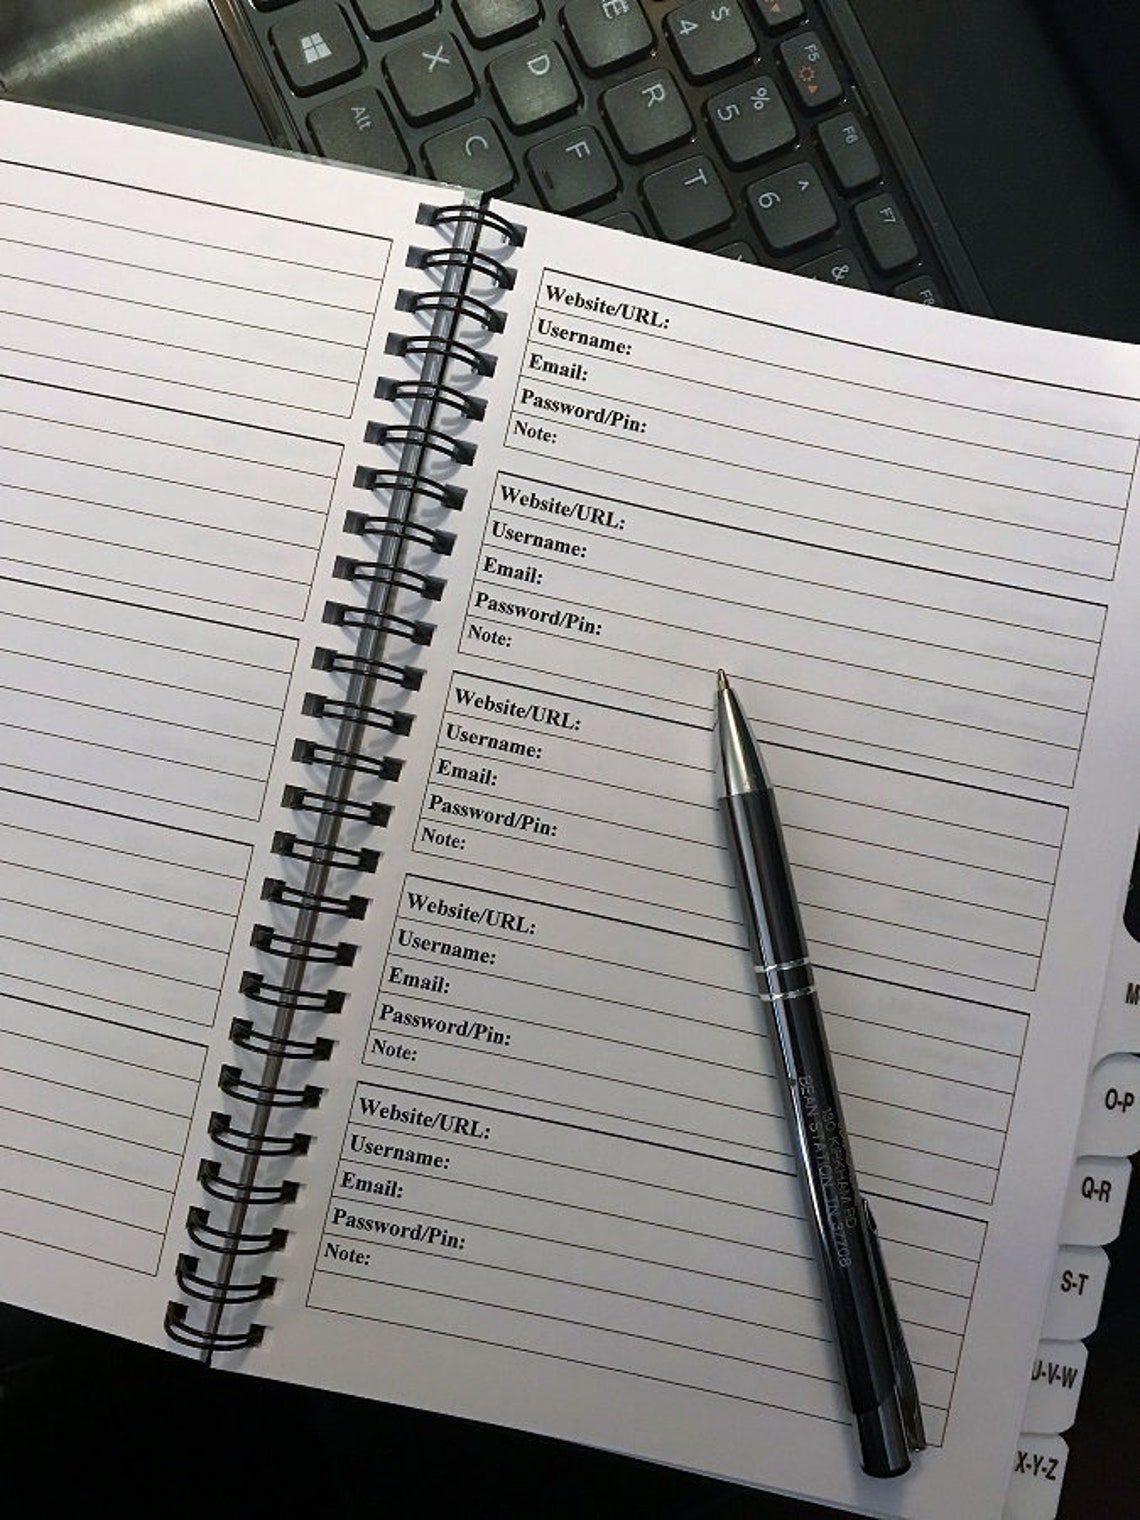 $
4
E
F5
X
D
R
%
5
F6
Alt
C
F
T
^
6
F7
&
F8
Website/URL:
Username:
Email:
Password/Pin:
Note:
Website/URL:
Username:
Email:
Password/Pin:
Note:
Website/URL:
Username:
Email:
Password/Pin:
Note:
Website/URL:
Username:
Email:
Password/Pin:
Note:
Website/URL:
Username:
Email:
Password/Pin:
Note:
RD
BEAN STATION, TN 37708
M
O-P
Q-R
S-T
U-V-W
X-Y-Z